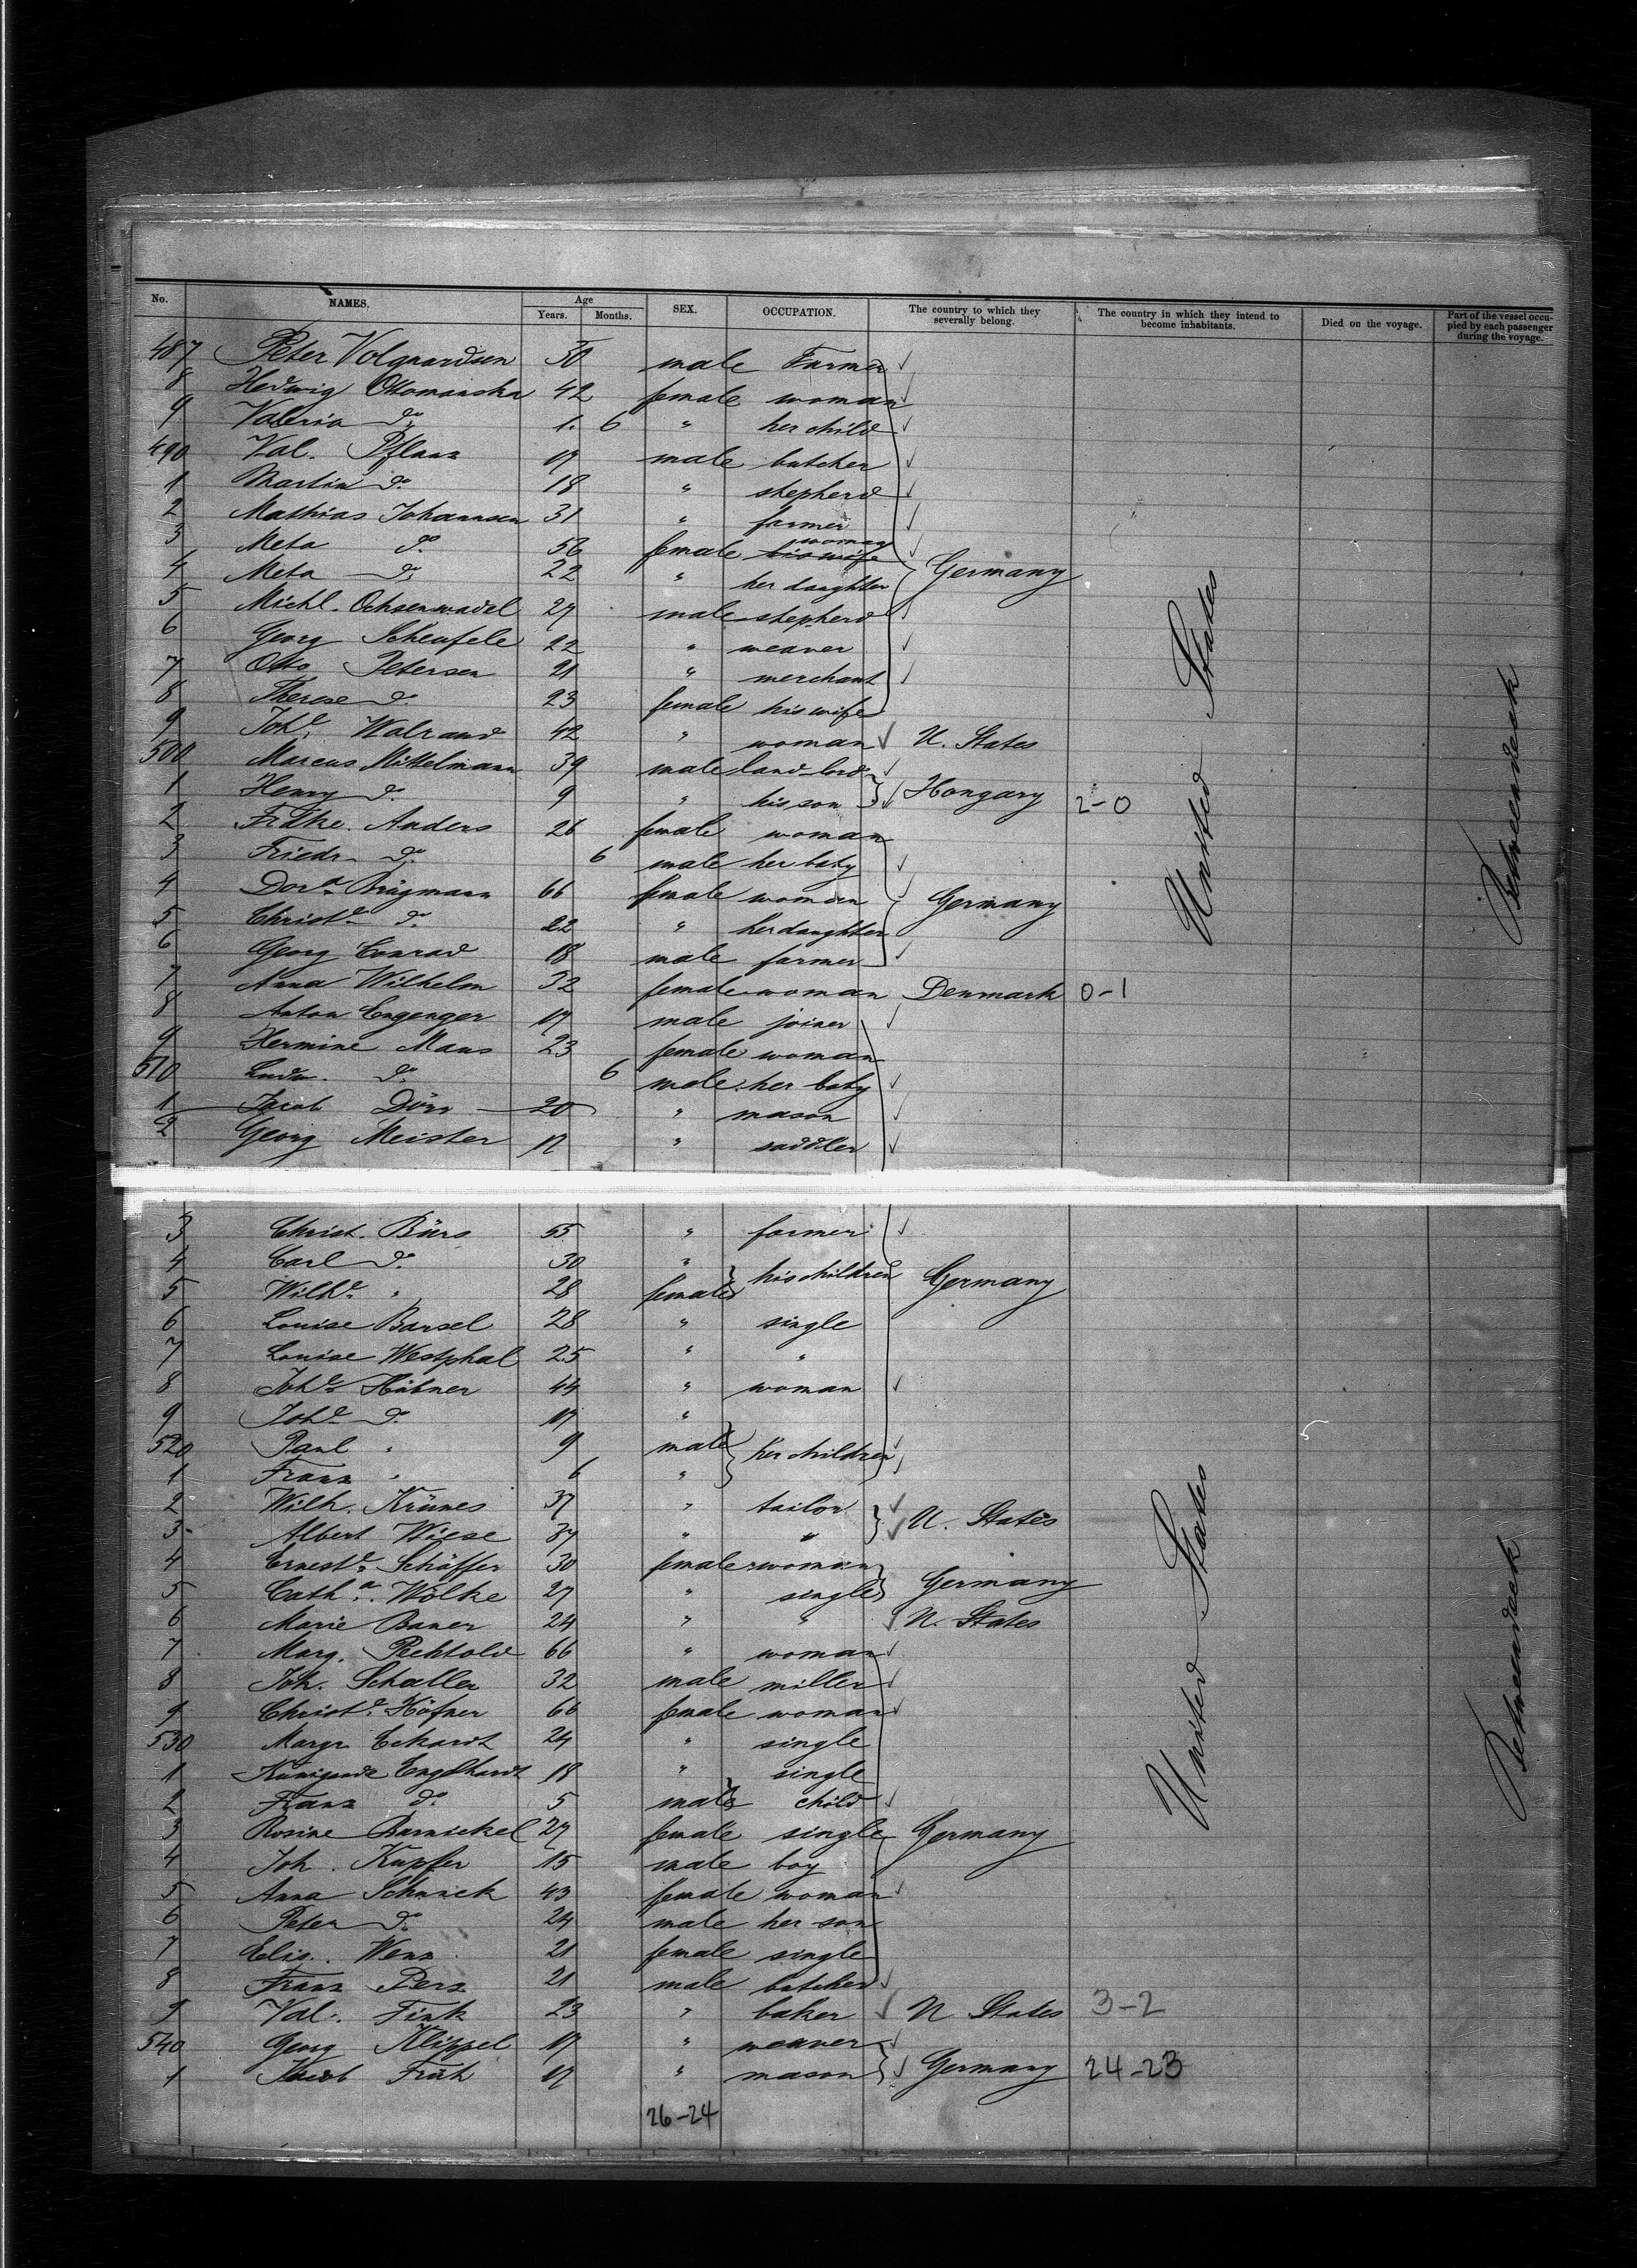 No. NAMES. Age Years. Months. SEX. OCCUPATION. The country to which they severally belong. The country in which they intend to become inhabitants. Died on the voyage. Part of the vessel occupied by each passenger during the voyage.
487 Peter Volquardsen 30 male Farmer
8 Hedwig Ottomanska 42 female woman
9 Valeria do 1. 6 " her child
490 Val. Pflanz 17 male butcher
1 Martin do 18 " shepherd
2 Mathias Johannsen 31 " farmer
3 Meta do 56 female his wife woman
4 Meta do 22 " her daughter Germany
5 Michl. Ochsenwadel 27 male shepherd
6 Georg Scheufele 22 " weaver
7 Otto Petersen 21 " merchant
8 Therese do 23 female his wife
9 Johe. Walrand 42 " woman U. States
500 Marcus Mittelmann 39 male land-lord
1 Henry do 9 " his son Hongary 2-0
2 Fridke. Anders 26 female woman
3 Friedr do 6 male her baby
4 Dora Brügmann 66 female woman Germany
5 Christe do 22 " her daughter
6 Georg Conrad 18 male farmer
7 Anna Wilhelm 32 female woman Denmark 0-1
8 Anton Engenger 17 male joiner
9 Hermine Maus 23 female woman
510 Ludw. do 6 male her baby
1 Jacob Dörr 20 " mason
2 Georg Meister 17 " saddler
3 Christ. Bürs 55 " farmer
4 Carl do 30 " his children Germany
5 Wilhe " 28 female
6 Louise Barsel 28 " single
7 Louise Westphal 25 " "
8 Johe Hübner 44 " woman
9 Johe do 17 "
520 Paul " 9 male her children
1 Franz " 6 "
2 Wilh. Krünes 37 " tailor U. States
3 Albert Wiese 37 " "
4 Erneste Schäffer 30 female woman Germany
5 Catha. Wölke 27 " single
6 Marie Bauer 24 " " U. States
7 Marg. Rechtold 66 " woman
8 Joh. Schaller 32 male miller
9 Christe. Höfner 66 female woman
530 Margr Eckardt 24 " single
1 Kunigunde Engelhardt 18 " single
2 Franz do 5 male child
3 Rosine Barnickel 27 female single Germany
4 Joh. Kupfer 15 male boy
5 Anna Schnack 43 female woman
6 Peter do 24 male her son
7 Elis. Wenz 21 female single
8 Franz Perz 21 male butcher
9 Val. Fink 23 " baker U States 3-2
540 Georg Klippel 17 " weaver
1 Jacob Früh 17 " mason Germany 24-23
26-24
United States
Betweendeck
United States
Betweendeck